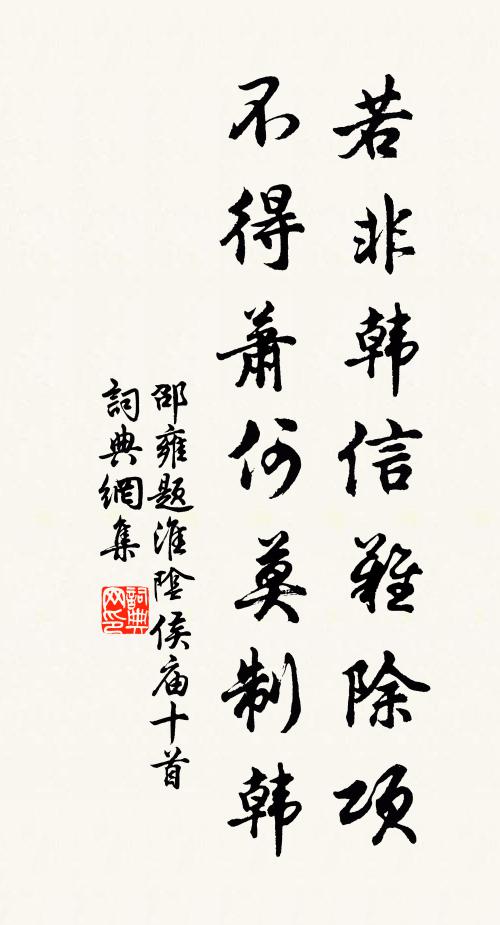 若非韩信難除项
不得蕭何莫制韩
邵雍题淮陰侯庙十首
詞典網集
詞典网印